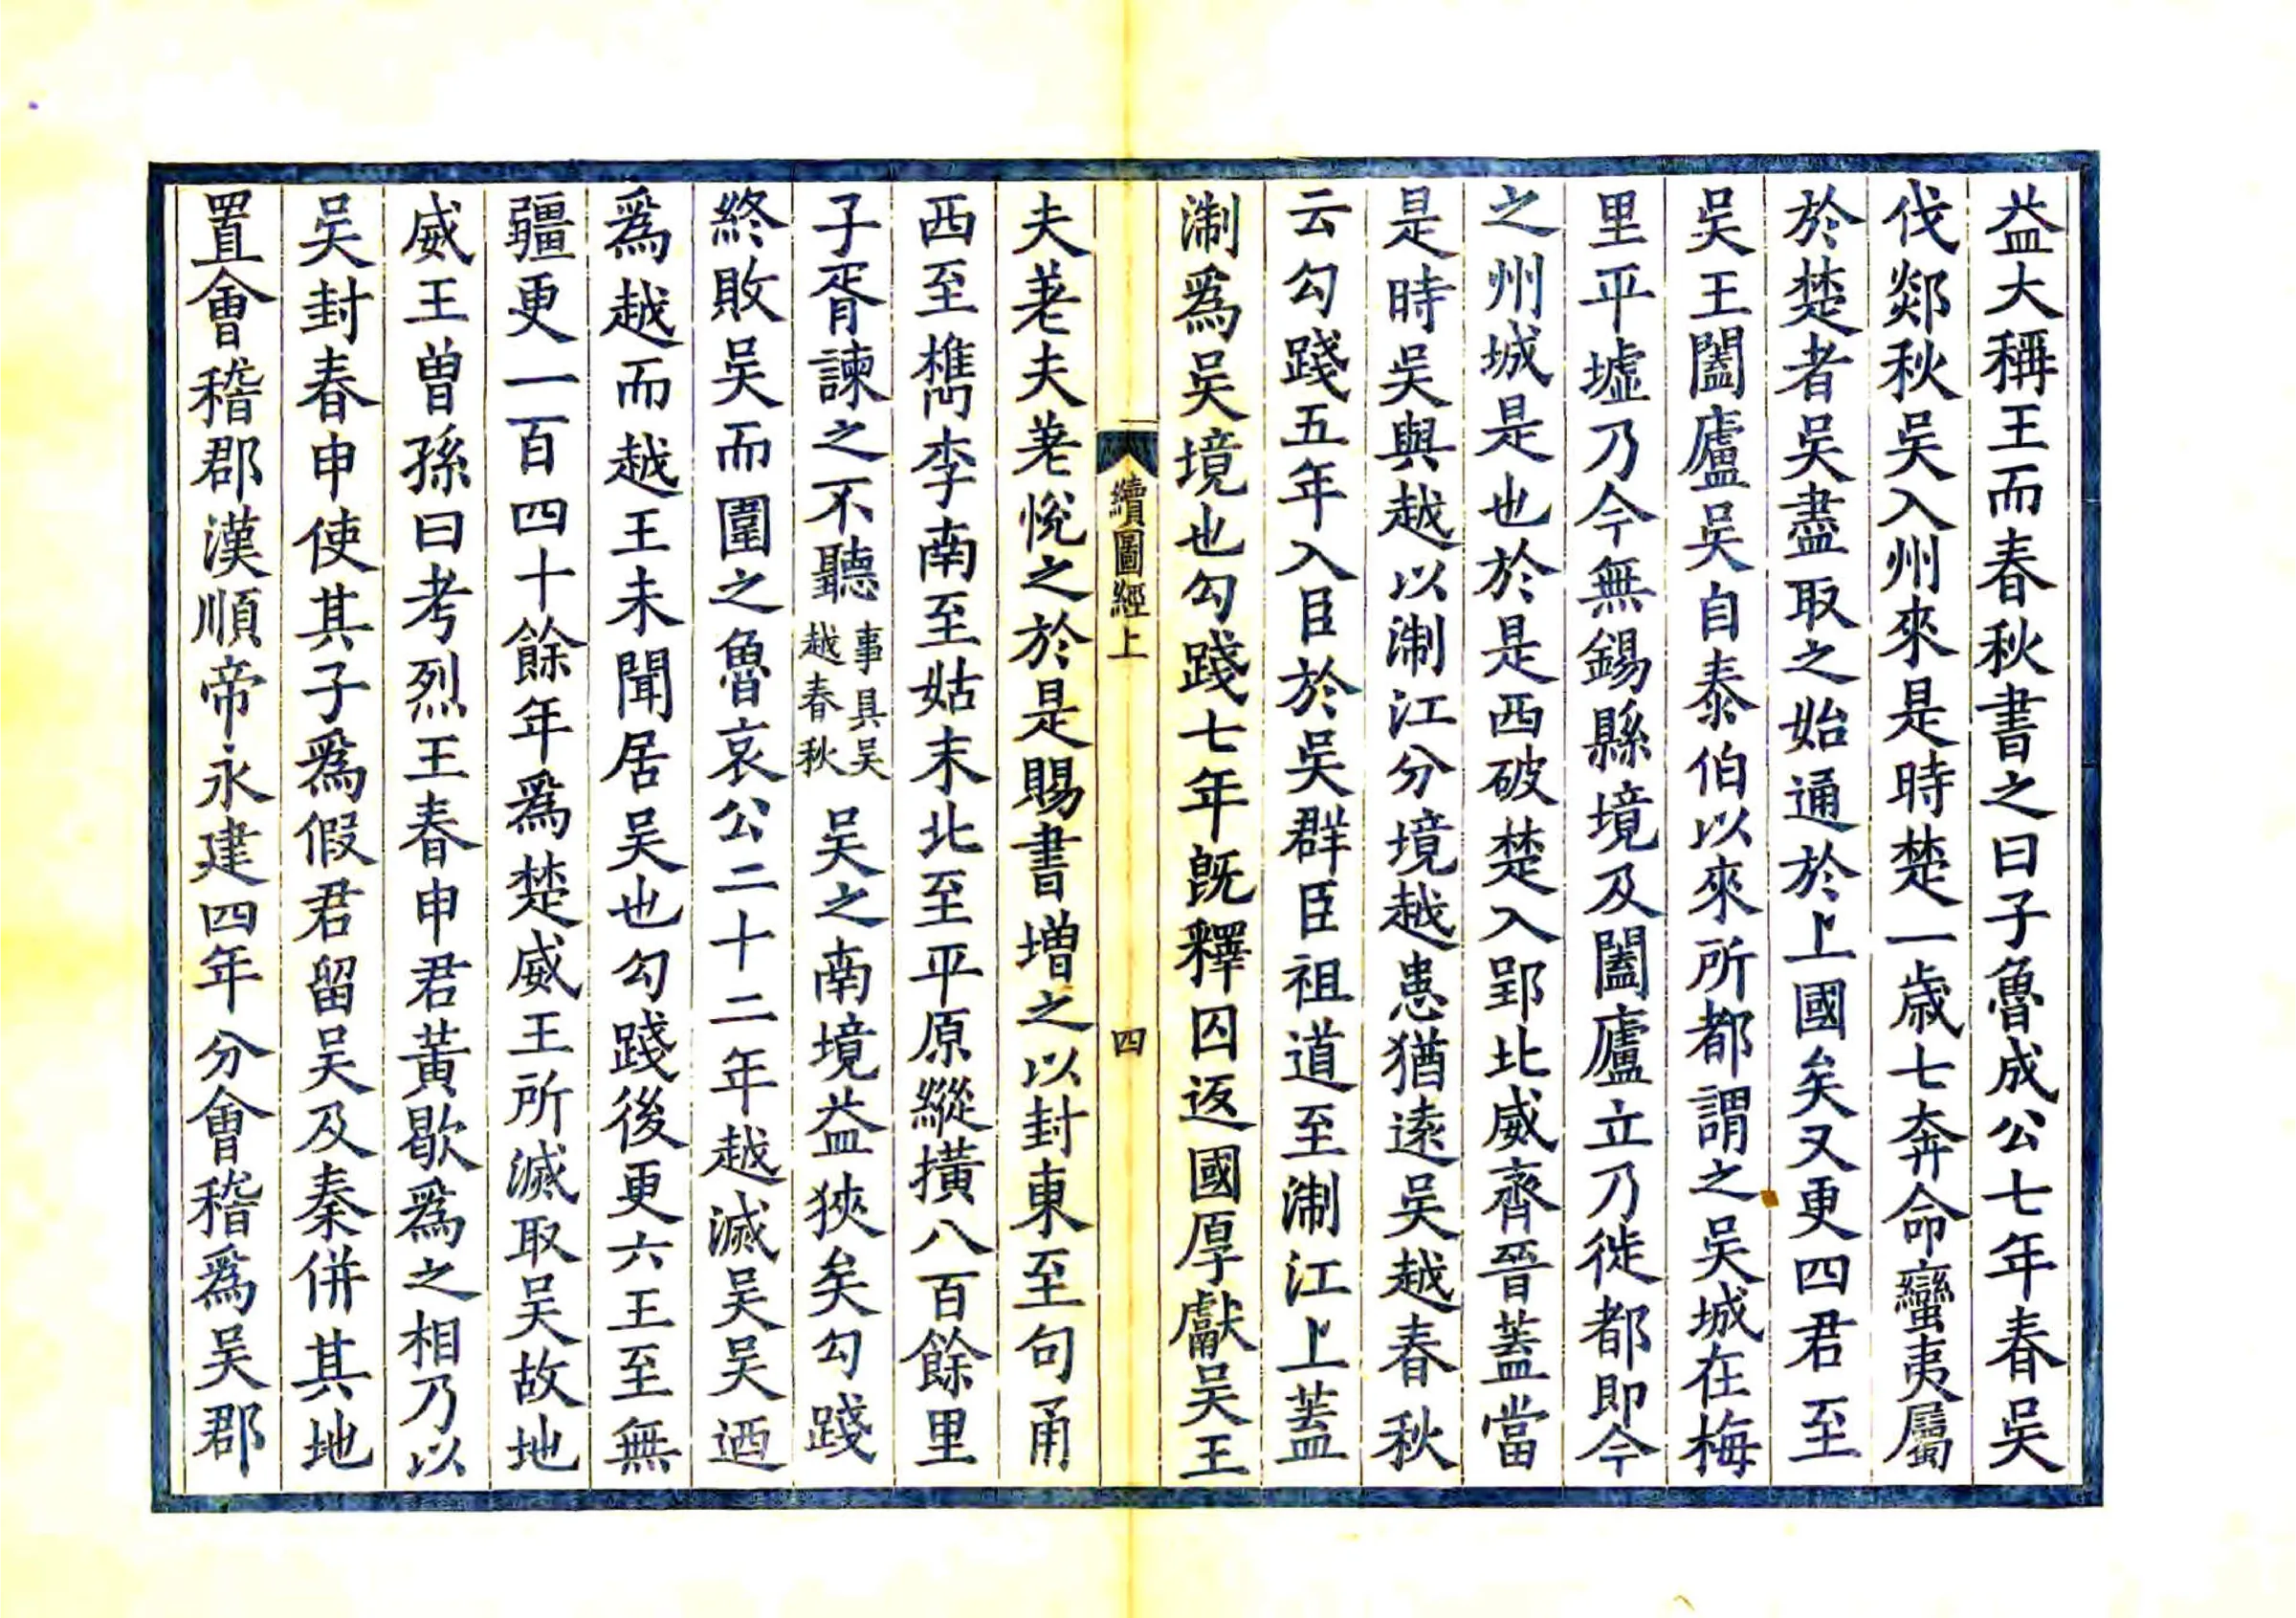 益大稱王而春秋書之曰子魯成公七年春吳
伐郯秋吳入州來是時楚一歲七奔命蠻夷屬
於楚者吳盡取之始通於上國矣又更四君至
吳王闔廬吳自泰伯以來所都謂之吳城在梅
里平墟乃今無錫縣境及闔廬立乃徙都即今
之州城是也於是西破楚入郢北威齊晉蓋當
是時吳與越以淛江分境越患猶遠吳越春秋
云勾踐五年入臣於吳群臣祖道至淛江上蓋
淛為吳境也勾踐七年旣釋囚返國厚獻吳王
續圖經上 四
夫差夫差悅之於是賜書增之以封東至句甬
西至檇李南至姑末北至平原縱橫八百餘里
子胥諫之不聽事具吳越春秋吳之南境益狹矣勾踐
終敗吳而圍之魯哀公二十二年越滅吳吳迺
為越而越王未聞居吳也勾踐後更六王至無
疆更一百四十餘年為楚威王所滅取吳故地
威王曾孫曰考烈王春申君黃歇為之相乃以
吳封春申使其子為假君留吳及秦併其地
置會稽郡漢順帝永建四年分會稽為吳郡